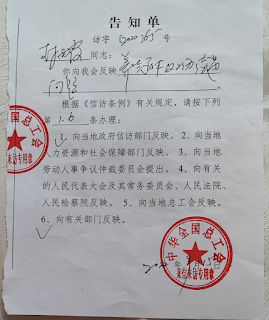 告知单
访字〔2022〕65号
同志:
你向我会反映
问题
根据《信访条例》有关规定,请按下列
第1.6条办理:
1、向当地政府信访部门反映。2、向当地
人力资源和社会保障部门反映。3、向当地
劳动人事争议仲裁委员会提出。4、向有关
的人民代表大会及其常务委员会、人民法院、
人民检察院反映。5、向当地总工会反映。
6、向有关部门反映。
中华全国总工会
来信来访专用章
年 月15日
全国总工会
来访专用章